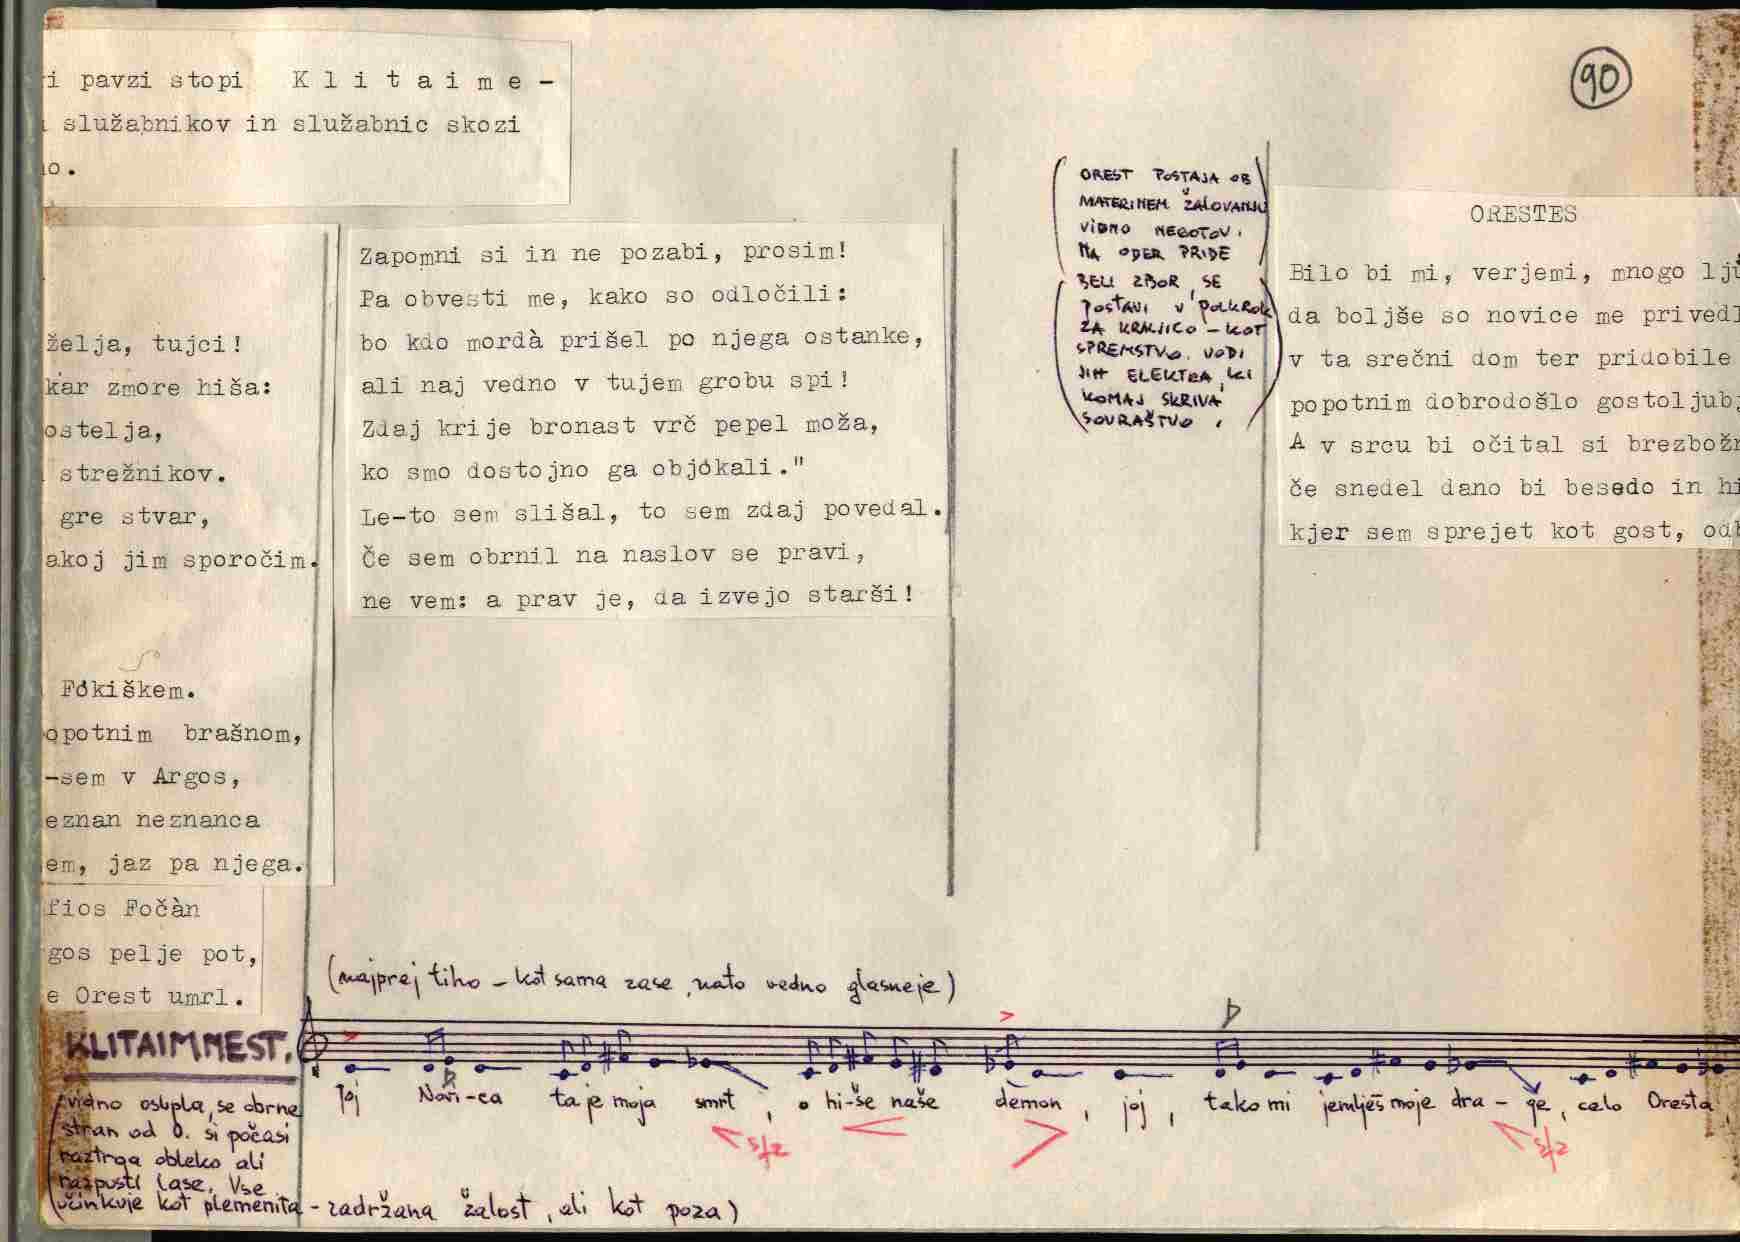 i pavzi stopi K l i t a i m e -
služabnikov in služabnic skozi
o.
želja, tujci!
kar zmore hiša:
ostelja,
strežnikov.
gre stvar,
akoj jim sporočim.
Fókiškem.
opotnim brašnom,
-sem v Argos,
eznan neznanca
em, jaz pa njega.
fios Fočàn
gos pelje pot,
e Orest umrl.
Zapomni si in ne pozabi, prosim!
Pa obvesti me, kako so odločili:
bo kdo mordà prišel po njega ostanke,
ali naj vedno v tujem grobu spi!
Zdaj krije bronast vrč pepel moža,
ko smo dostojno ga objókali."
Le-to sem slišal, to sem zdaj povedal.
Če sem obrnil na naslov se pravi,
ne vem: a prav je, da izvejo starši!
(OREST POSTAJA OB
MATERINEM ŽALOVANJU
VIDNO NEGOTOV.
NA ODER PRIDE
BELI ZBOR, SE
POSTAVI V POLKROK
ZA KRALJICO – KOT
SPREMSTVO. VODI
JIH ELEKTRA, KI
KOMAJ SKRIVA
SOVRAŠTVO.)
90
ORESTES
Bilo bi mi, verjemi, mnogo lju
da boljše so novice me privedl
v ta srečni dom ter pridobile
popotnim dobrodošlo gostoljubj
A v srcu bi očital si brezbožn
če snedel dano bi besedo in hi
kjer sem sprejet kot gost, odb
(najprej tiho – kot sama zase, nato vedno glasneje)
KLITAIMNEST.
Joj Nori-ca ta je moja smrt, o hi-še naše dèmon, joj, tako mi jemlješ moje dra-ge, celo Oresta,
sfz sfz
(vidno osupla, se obrne
stran od O. si počasi
raztrga obleko ali
razpusti lase. Vse
učinkuje kot plemenita – zadržana žalost, ali kot poza)